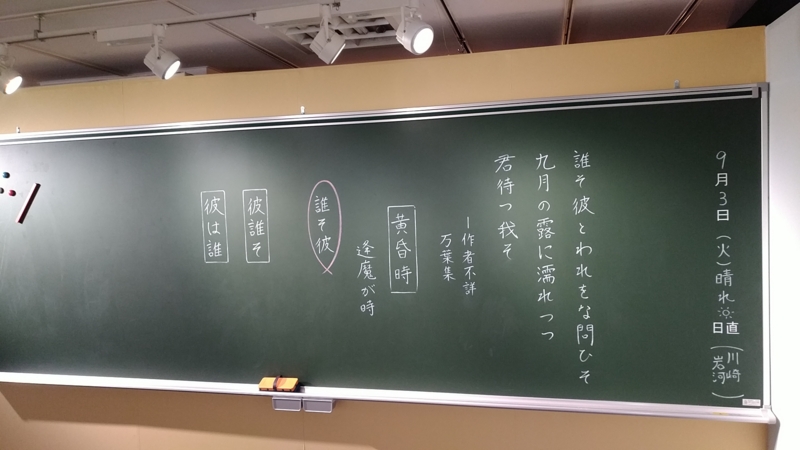 9月3日(火)晴れ
日直(川崎
岩河)
誰そ彼とわれをな問ひそ
九月の露に濡れつつ
君待つ我そ
ー作者不詳
万葉集
黄昏時
逢魔が時
誰そ彼
彼誰そ
彼は誰